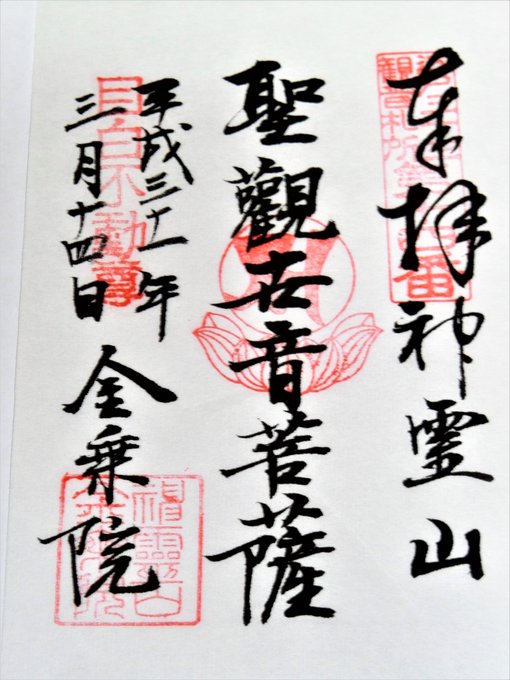 奉拝 神霊山
聖觀世音菩薩
平成三十一年
三月十四日 金乗院
目白不動尊